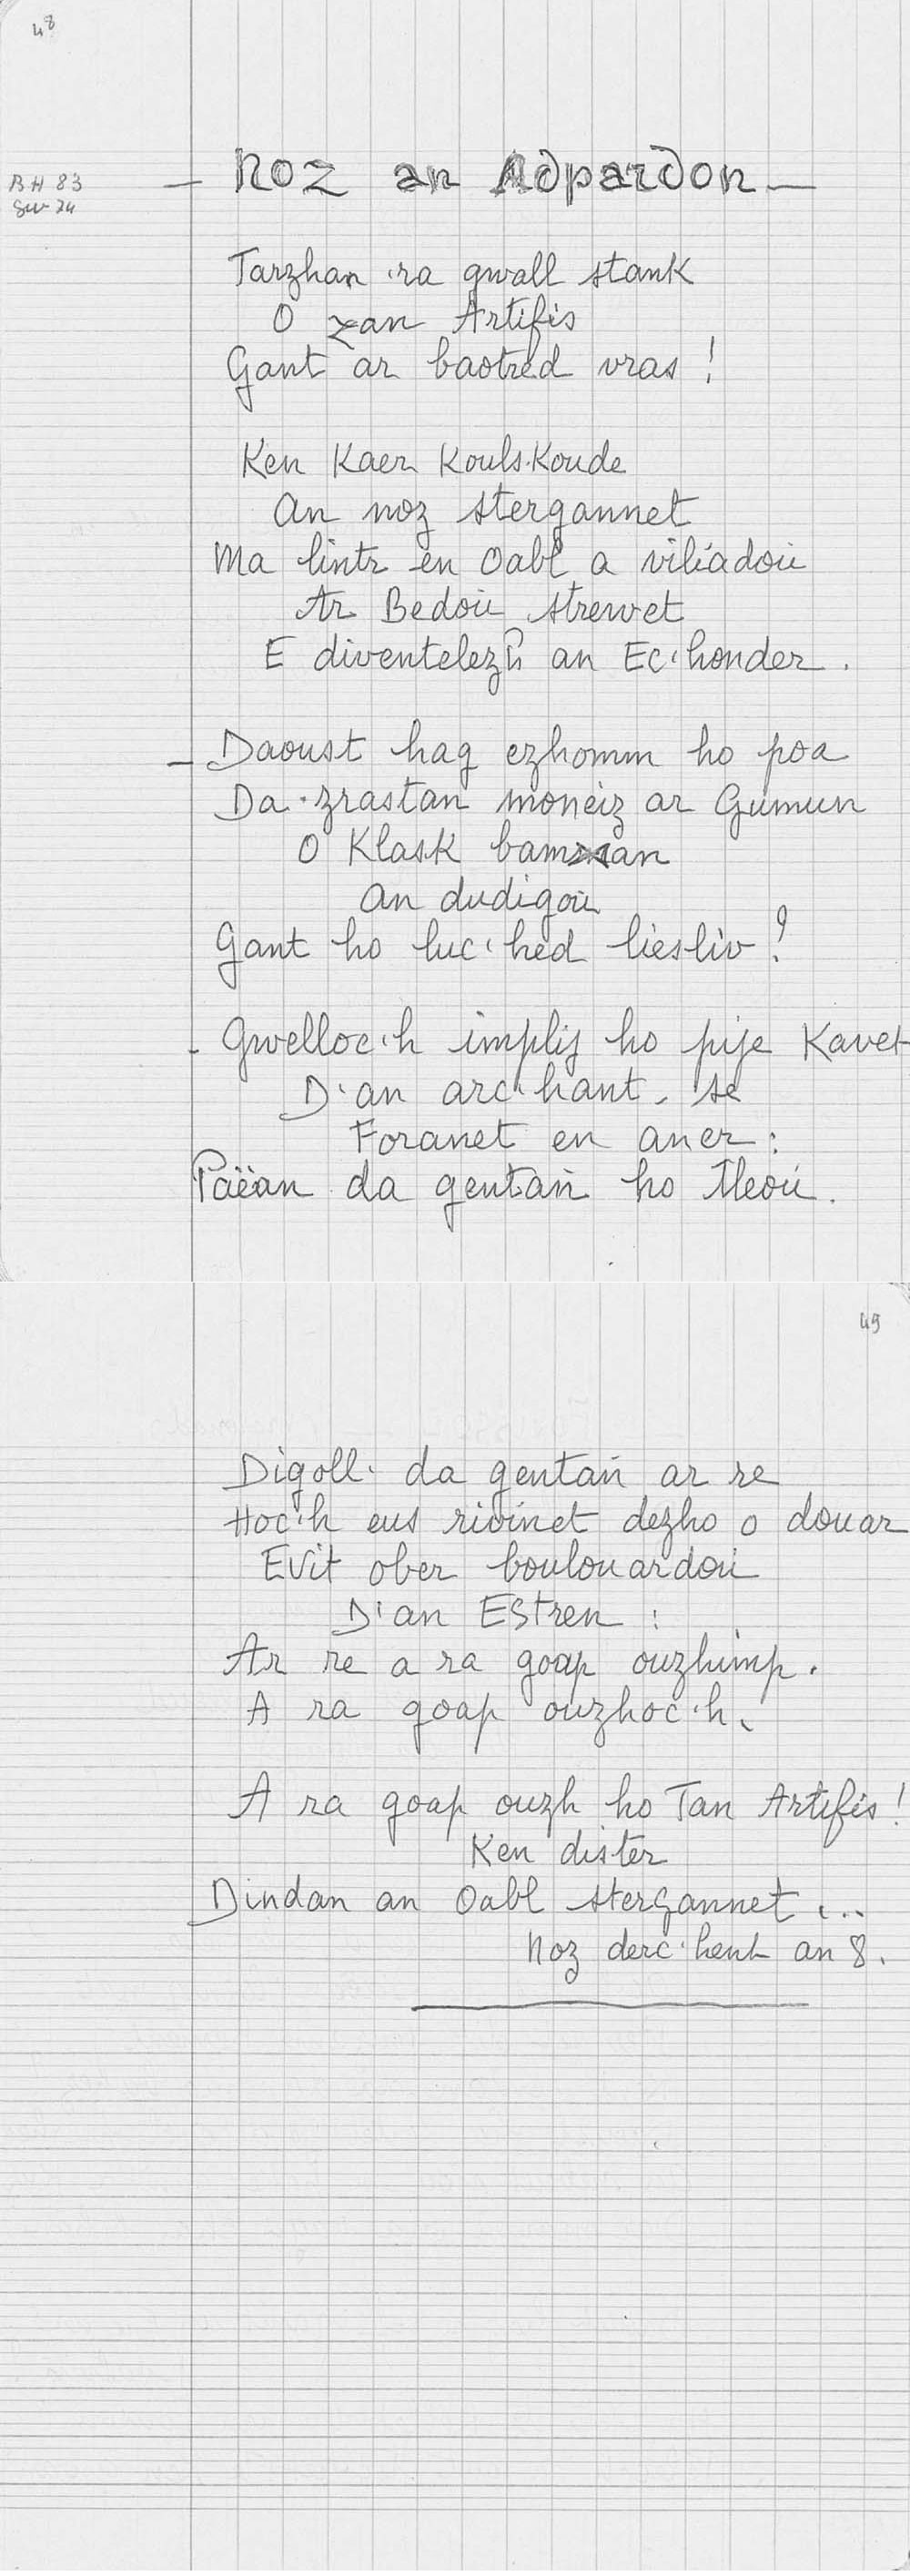 48
BH 83
— Noz an Adpardon —
Tarzhan 'ra gwall stank
O zan Artifis
Gant ar baotred vras !
Ken Kaer Kouls-Koude
An noz stergannet
Ma lintr en Oabl a viliadoù
Ar Bedoù strewet
E diventelezh an Ec'honder .
_ Daoust hag ezhomm ho poa
Da zrastan moneiz ar Gumun
O Klask baman
An dudigoù
Gant ho luc'hed liesliv ?
- Gwelloc'h implij ho pije Kavet
D'an arc'hant - se
Foranet en aner :
Paëan da gentañ ho Tleoù .
49
Digoll da gentañ ar re
Hoc'h eus rivinet dezho o douar
Evit ober boulouardoù
D'an Estren :
Ar re a ra goap ouzhimp .
A ra goap ouzhoc'h .
A ra goap ouzh ho Tan Artifis !
Ken dister
Dindan an Oabl stergannet ...
Noz derc'hent an 8 .